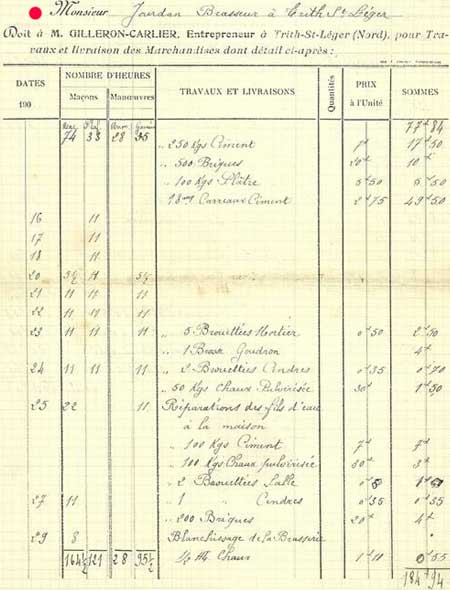 Monsieur Jourdan Brasseur à Trith St Léger
Doit à M. GILLERON-CARLIER, Entrepreneur à Trith-St-Léger (Nord), pour Tra-
vaux et livraison des Marchandises dont détail ci-après :
DATES 190 NOMBRE D'HEURES Maçons Manœuvres TRAVAUX ET LIVRAISONS Quantités PRIX à l'Unité SOMMES
77f 84
74 38 28 35
„ 250 Kgs Ciment 7f 17f 50
„ 500 Briques 20f 10f
„ 100 Kgs Plâtre 5f 50 5f 50
18m Carreaux Ciment 2f 75 49f 50
16 11
17 11
18 11
20 5½ 11 5½
21 11 11 11
22 11 11 11
23 11 11 11 11 „ 5 Brouettées Mortier 0f 50 2f 50
„ 1 Goudron 4f
24 11 11 11 11 „ 2 Brouettées Cendres 0f 35 0f 70
„ 50 Kgs Chaux Pulvérisée 30f 1f 50
25 22 11 Réparations des fils d'eau
à la maison
„ 100 Kgs Ciment 7f 7f
„ 100 Kgs Chaux pulvérisée 30f 3f
„ 2 Brouettées Sable
27 11 „ 1 „ Cendres 0f 35 0f 35
„ 200 Briques 20f 4f
29 8 Blanchissage de la Brasserie
½ Chaux 1f 10 0f 55
164½ 121 28 95½
184f 94